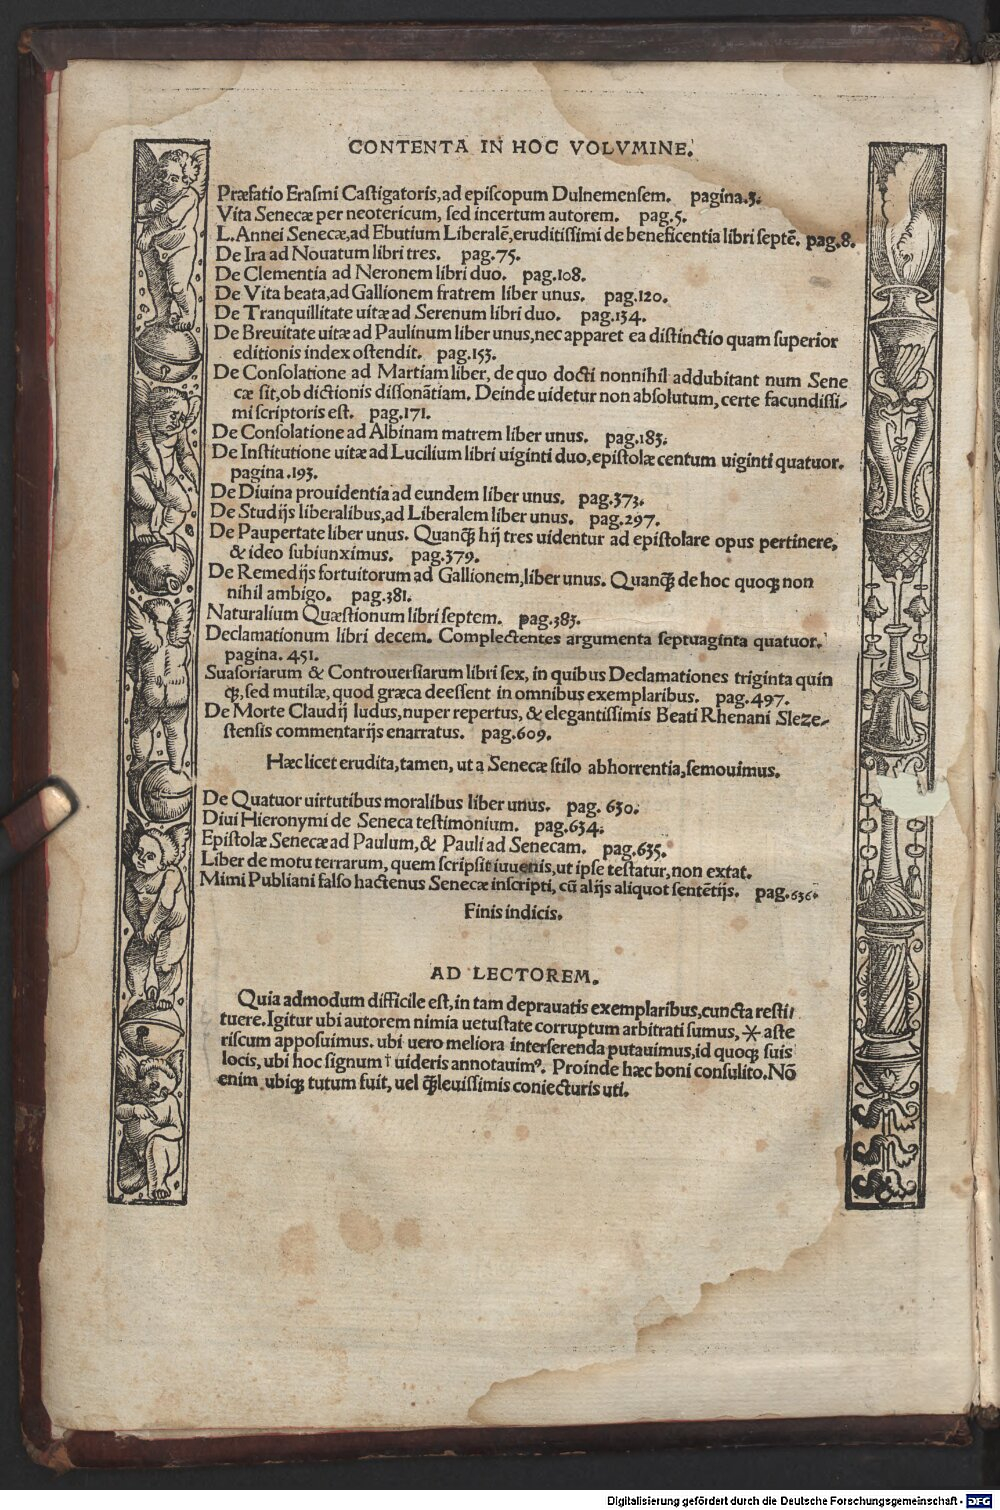 CONTENTA IN HOC VOLVMINE.
Præfatio Erasmi Castigatoris, ad episcopum Dulnemensem. pagina.3.
Vita Senecæ per neotericum, sed incertum autorem. pag.5.
L. Annei Senecæ, ad Ebutium Liberalē, eruditissimi de beneficentia libri septē. pag.8.
De Ira ad Nouatum libri tres. pag.75.
De Clementia ad Neronem libri duo. pag.108.
De Vita beata, ad Gallionem fratrem liber unus. pag.120.
De Tranquillitate uitæ ad Serenum libri duo. pag.134.
De Breuitate uitæ ad Paulinum liber unus, nec apparet ea distinctio quam superior
editionis index ostendit. pag.153.
De Consolatione ad Martiam liber, de quo docti nonnihil addubitant num Sene
cæ sit, ob dictionis dissonātiam. Deinde uidetur non absolutum, certe facundissi-
mi scriptoris est. pag.171.
De Consolatione ad Albinam matrem liber unus. pag.183.
De Institutione uitæ ad Lucilium libri uiginti duo, epistolæ centum uiginti quatuor.
pagina.193.
De Diuina prouidentia ad eundem liber unus. pag.373.
De Studijs liberalibus, ad Liberalem liber unus. pag.297.
De Paupertate liber unus. Quanq̃ hij tres uidentur ad epistolare opus pertinere,
& ideo subiunximus. pag.379.
De Remedijs fortuitorum ad Gallionem, liber unus. Quanq̃ de hoc quoq; non
nihil ambigo. pag.381.
Naturalium Quæstionum libri septem. pag.383.
Declamationum libri decem. Complectentes argumenta septuaginta quatuor.
pagina. 451.
Suasoriarum & Controuersiarum libri sex, in quibus Declamationes triginta quin
q;, sed mutilæ, quod græca deessent in omnibus exemplaribus. pag.497.
De Morte Claudij ludus, nuper repertus, & elegantissimis Beati Rhenani Sleze-
stensis commentarijs enarratus. pag.609.
Hæc licet erudita, tamen, ut a Senecæ stilo abhorrentia, semouimus.
De Quatuor uirtutibus moralibus liber unus. pag. 630.
Diui Hieronymi de Seneca testimonium. pag.634.
Epistolæ Senecæ ad Paulum, & Pauli ad Senecam. pag.635.
Liber de motu terrarum, quem scripsit iuuenis, ut ipse testatur, non extat.
Mimi Publiani falso hactenus Senecæ inscripti, cū alijs aliquot sentētijs. pag.636.
Finis indicis.
AD LECTOREM.
Quia admodum difficile est, in tam deprauatis exemplaribus, cuncta resti/
tuere. Igitur ubi autorem nimia uetustate corruptum arbitrati sumus, ⚹ aste
riscum apposuimus. ubi uero meliora interserenda putauimus, id quoq; suis
locis, ubi hoc signum † uideris annotauimꝰ. Proinde hæc boni consulito. Nō
enim ubiq; tutum fuit, uel q̃ leuissimis coniecturis uti.
Digitalisierung gefördert durch die Deutsche Forschungsgemeinschaft - DFG